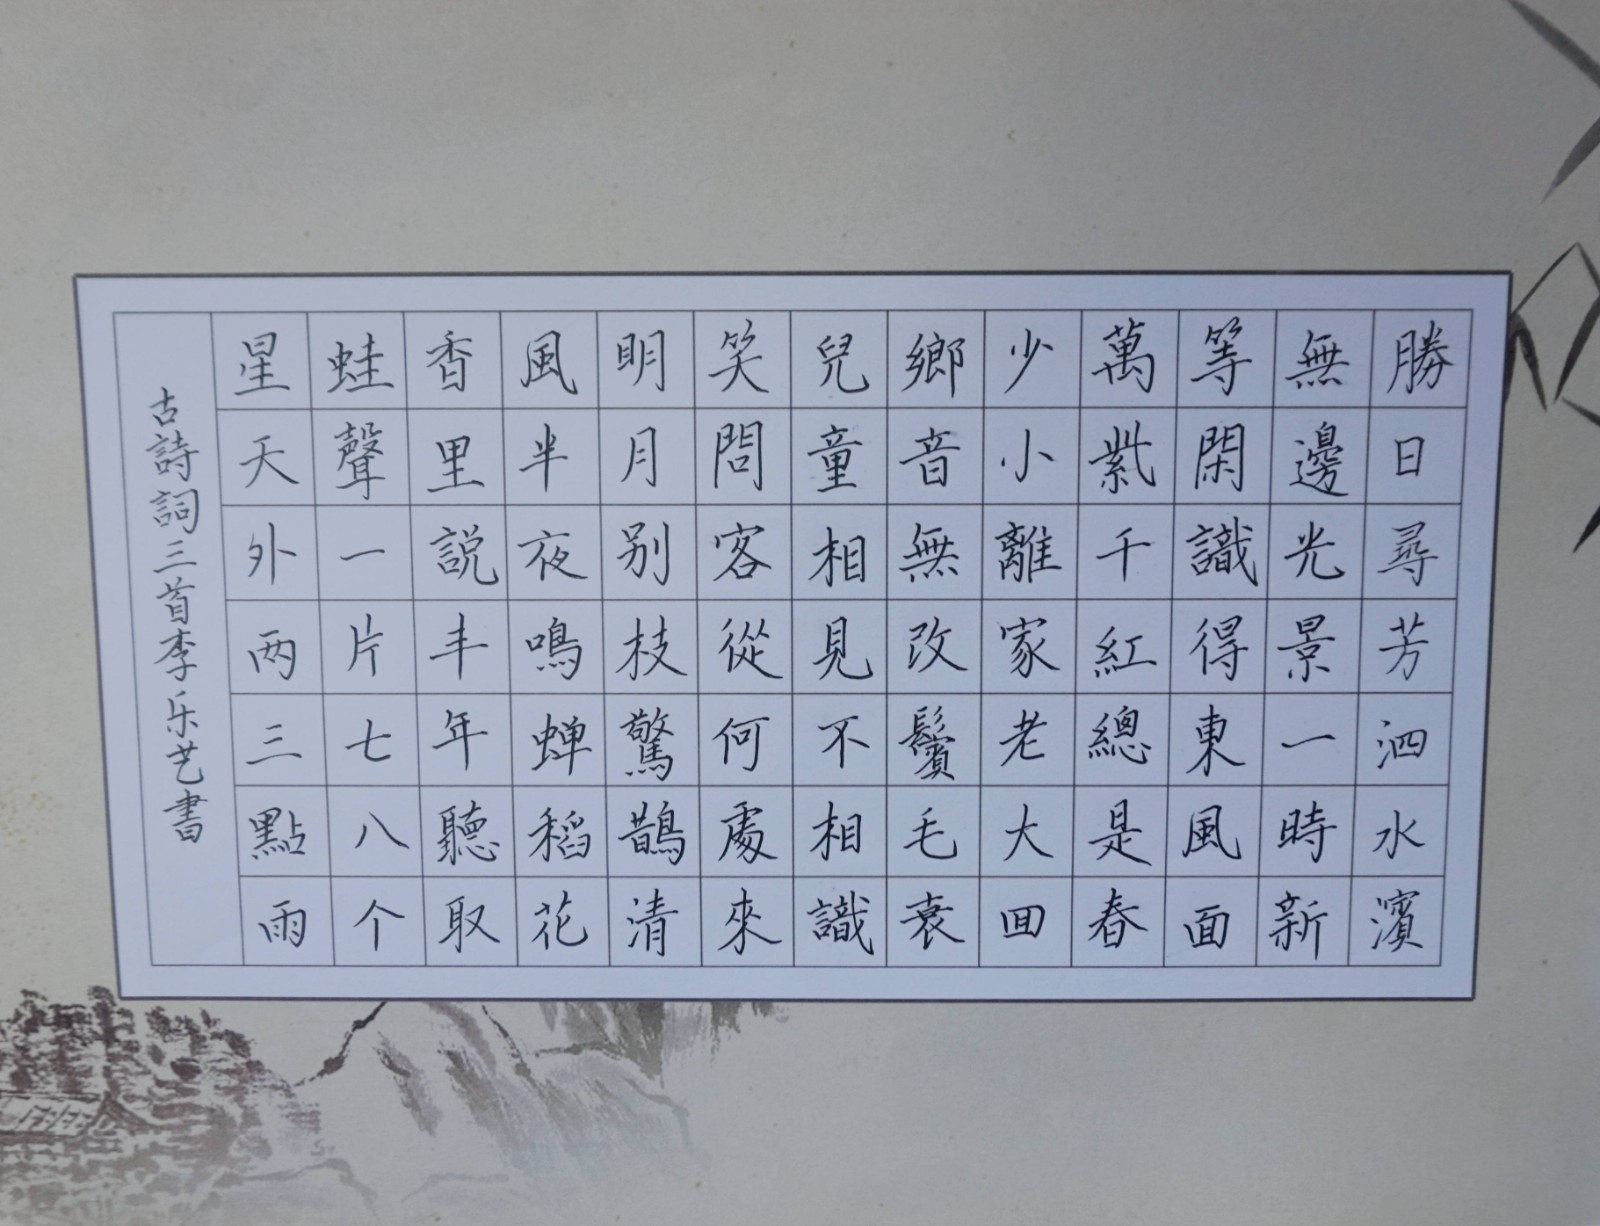 勝日尋芳泗水濱
無邊光景一時新
等閑識得東風面
萬紫千紅總是春
少小離家老大回
鄉音無改鬢毛衰
兒童相見不相識
笑問客從何處來
明月别枝驚鵲清
風半夜鳴蟬稻花
香里説丰年聽取
蛙聲一片七八个
星天外两三點雨
古詩詞三首李乐艺書